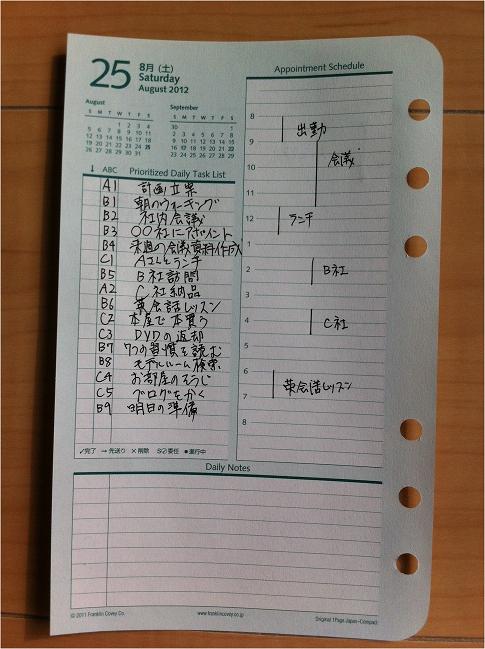 25
8月 (土)
Saturday
August 2012
August
S M T W T F S
1 2 3 4
5 6 7 8 9 10 11
12 13 14 15 16 17 18
19 20 21 22 23 24 25
26 27 28 29 30 31
September
S M T W T F S
30 1
2 3 4 5 6 7 8
9 10 11 12 13 14 15
16 17 18 19 20 21 22
23 24 25 26 27 28 29
↓ ABC Prioritized Daily Task List
A1 計画立案
B1 朝のウォーキング
B2 社内会議
B3 〇〇社にアポイント
B4 来週の会議資料作成
C1 Aさんとランチ
B5 B社訪問
A2 C社納品
B6 英会話レッスン
C2 本屋で本買う
C3 DVDの返却
B7 7つの習慣を読む
B8 モデルルーム検索
C4 お部屋のそうじ
C5 ブログをかく
B9 明日の準備
✓完了 →先送り ×削除 S⊘委任 ●進行中
Appointment Schedule
8
出勤
9
会議
10
11
12
ランチ
1
2
B社
3
4
C社
5
6
7
英会話レッスン
8
Daily Notes
© 2011 Franklin Covey Co.
www.franklincovey.co.jp
Original 1Page Japan-Compact